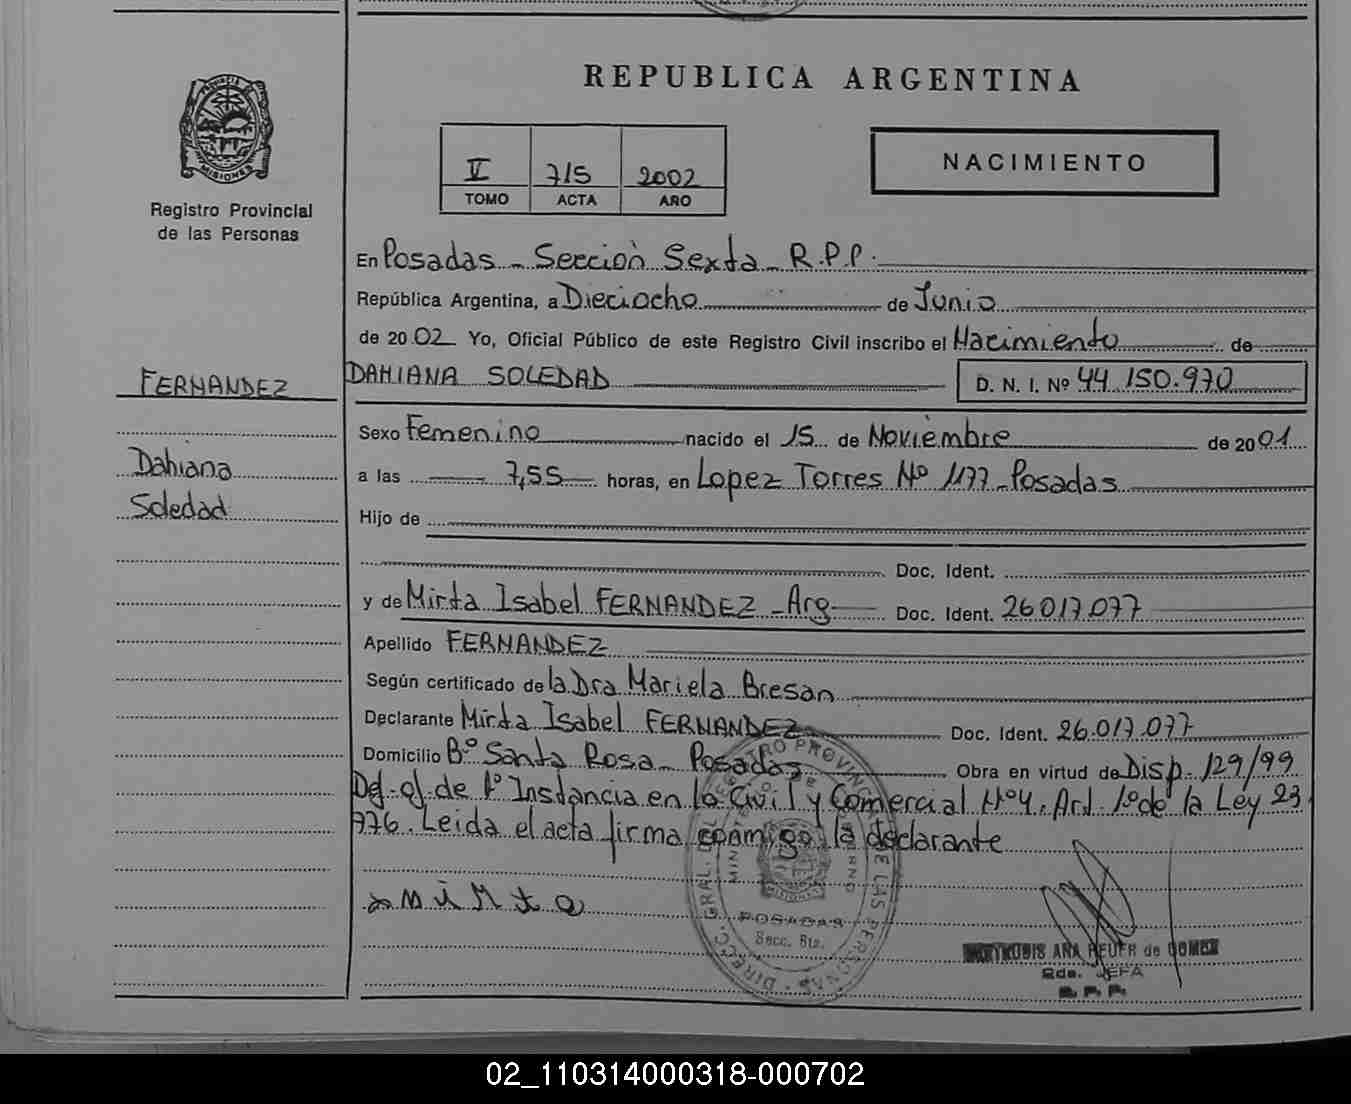 REPUBLICA ARGENTINA
PROVINCIA DE
MISIONES
Registro Provincial
de las Personas
II 715 2002
TOMO ACTA AÑO
NACIMIENTO
En Posadas - Sección Sexta - R.P.P.
República Argentina, a Dieciocho de Junio
de 20 02 Yo, Oficial Público de este Registro Civil inscribo el Nacimiento de
DAHIANA SOLEDAD D. N. I. Nº 44 150.970
FERNANDEZ
Dahiana
Soledad
Sexo Femenino nacido el 15 de Noviembre de 20 01
a las 7,55 horas, en Lopez Torres Nº 1177 - Posadas
Hijo de
Doc. Ident.
y de Mirta Isabel FERNANDEZ - Arg Doc. Ident. 26 017.077
Apellido FERNANDEZ
Según certificado de la Dra Mariela Bresan
Declarante Mirta Isabel FERNANDEZ Doc. Ident. 26.017.077
Domicilio Bº Santa Rosa - Posadas Obra en virtud de Disp. 129/99
de 1º Instancia en lo Civil y Comercial Nº 4. Art. 1º de la Ley 23
776. Leida el acta firma conmigo la declarante
Mirta
DIRECC. GRAL. DEL REGISTRO PROVINCIAL DE LAS PERSONAS
POSADAS
Secc. 6ta.
ANA REUER de GOMEZ
JEFA
R. P. P.
02_110314000318-000702